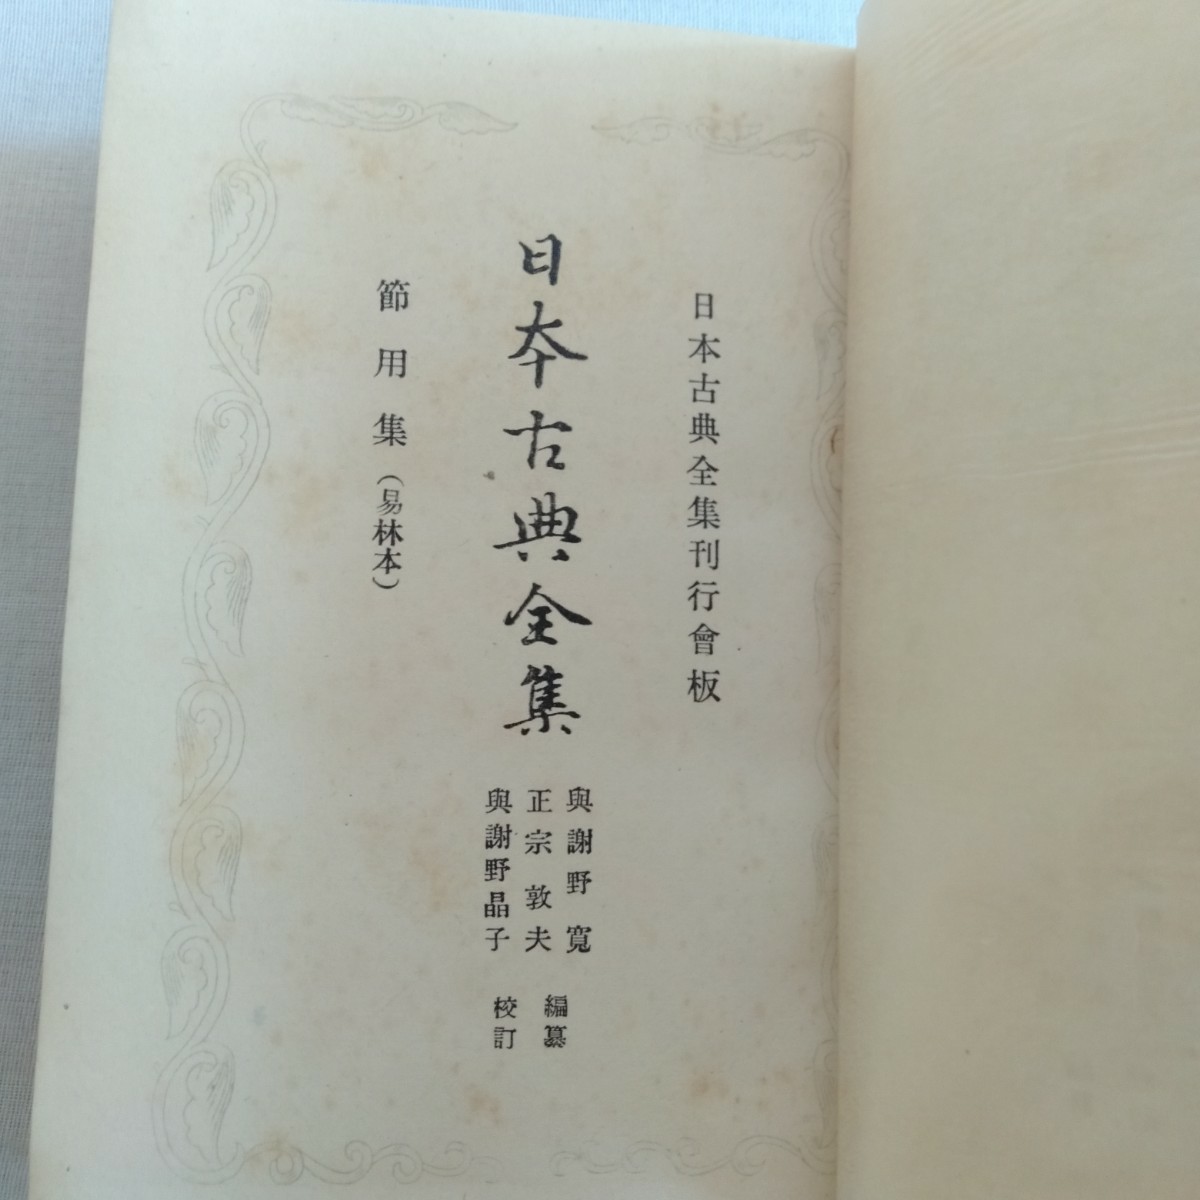 日本古典全集刊行會板
日本古典全集
與謝野寬
正宗敦夫
與謝野晶子
編纂
校訂
節用集（易林本）